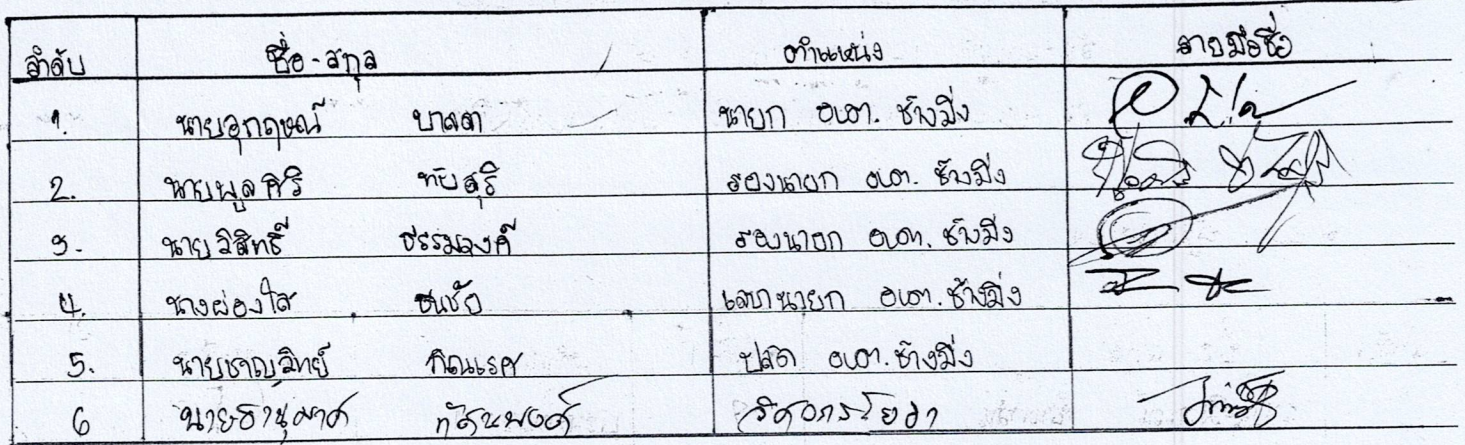 ลำดับ ชื่อ-สกุล ตำแหน่ง ลายมือชื่อ
1. นายอุกฤษณ์ บาลลา นายก อบต. ช้างมิ่ง
2. นายพูลศิริ ทับสุริ รองนายก อบต. ช้างมิ่ง
3. นายวิสิทธิ์ ธรรมวงค์ รองนายก อบต. ช้างมิ่ง
4. นางผ่องใส ชนชัย เลขานายก อบต. ช้างมิ่ง
5. นายชาญวิทย์ กิณเรศ ปลัด อบต. ช้างมิ่ง
6 นายธานุมาศ ทัศนพงค์